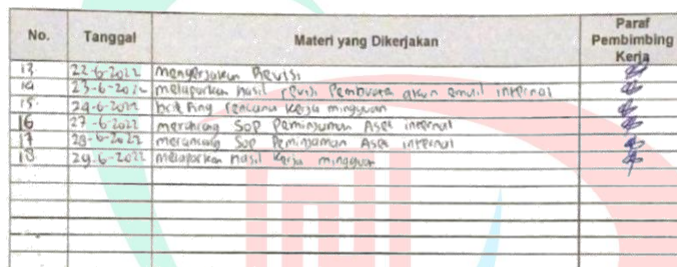 No. Tanggal Materi yang Dikerjakan Paraf Pembimbing Kerja
13 22-6-2022 Mengerjakan Revisi
14 23-6-2022 melaporkan hasil revisi Pembuata akun email internal
15. 24-6-2022 brif Fing rencana kerja mingguan
16 27-6-2022 merancang Sop Peminjaman Aset internal
17 28-6-2022 merancang Sop Peminjaman Aset internal
18 29-6-2022 melaporkan hasil kerja mingguan